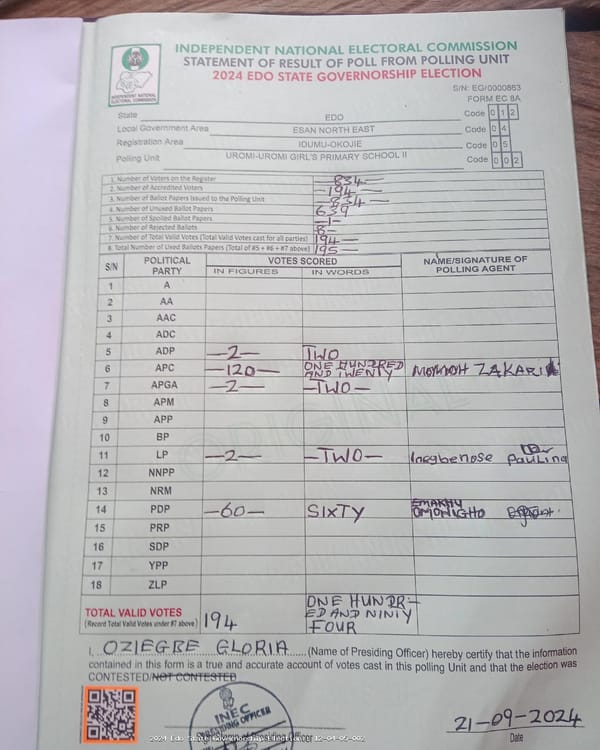 INDEPENDENT NATIONAL ELECTORAL COMMISSION
STATEMENT OF RESULT OF POLL FROM POLLING UNIT
2024 EDO STATE GOVERNORSHIP ELECTION
INDEPENDENT NATIONAL
ELECTORAL COMMISSION
S/N: EG/0000863
FORM EC 8A
State EDO Code 0 1 2
Local Government Area ESAN NORTH EAST Code 0 4
Registration Area IDUMU-OKOJIE Code 0 5
Polling Unit UROMI-UROMI GIRL'S PRIMARY SCHOOL II Code 0 0 2
1. Number of Voters on the Register —834—
2. Number of Accredited Voters —194—
3. Number of Ballot Papers Issued to the Polling Unit —834—
4. Number of Unused Ballot Papers 639
5. Number of Spoiled Ballot Papers —1—
6. Number of Rejected Ballots
7. Number of Total Valid Votes (Total Valid Votes cast for all parties) 194—
8. Total Number of Used Ballots Papers (Total of #5 + #6 + #7 above) 195—
S/N POLITICAL PARTY VOTES SCORED NAME/SIGNATURE OF POLLING AGENT
IN FIGURES IN WORDS
1 A
2 AA
3 AAC
4 ADC
5 ADP —2— TWO
6 APC —120— ONE HUNDRED AND TWENTY ZAKARI
7 APGA —2— —TWO—
8 APM
9 APP
10 BP
11 LP —2— —TWO— Inegbenose Paulina
12 NNPP
13 NRM
14 PDP —60— SIXTY OMONIGHO
15 PRP
16 SDP
17 YPP
18 ZLP
ORIGINAL
TOTAL VALID VOTES 194 ONE HUNDR-
(Record Total Valid Votes under #7 above) ED AND NINTY
FOUR
I, OZIEGBE GLORIA (Name of Presiding Officer) hereby certify that the information
contained in this form is a true and accurate account of votes cast in this polling Unit and that the election was
CONTESTED/NOT CONTESTED
INEC
PRESIDING OFFICER
21-09-2024
Date